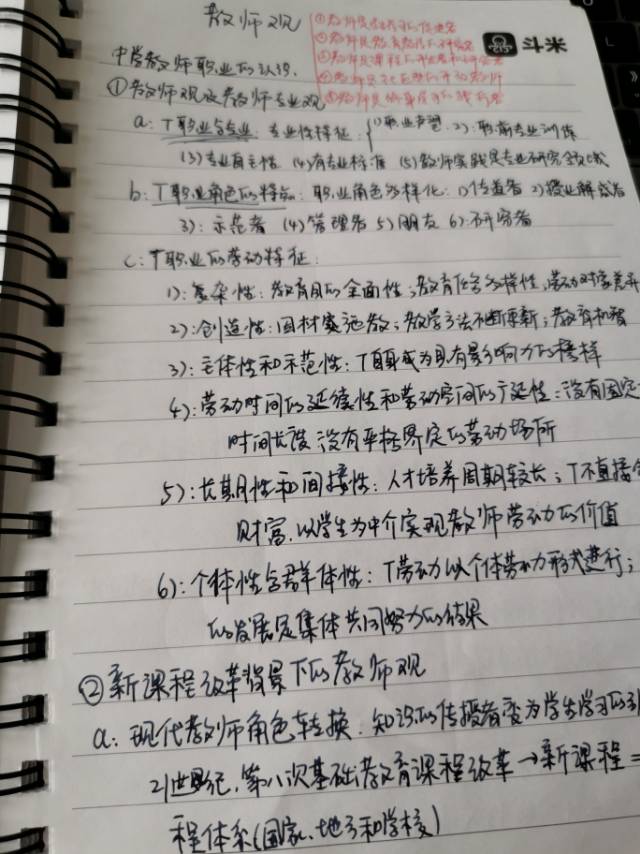 教师观
斗米
①教师是学生学习的促进者
②教师是教育教学的研究者
③教师是课程的开发者和研究者
④教师是社区型的开放教师
⑤教师是终身学习的践行者
中学教师职业的认识.
①教师观及教师专业观
a: T职业与专业. 专业性特征: 1)职业声望. 2): 职前专业训练
(3)专业自主性 (4)有专业标准 (5)教师实践是专业研究领域
b: T职业角色的特点: 职业角色多样化: 1)传道者 2)授业解惑者
3): 示范者 (4)管理者 5)朋友 6):研究者
c: T职业的劳动特征:
1): 复杂性: 教育目的全面性; 教育任务多样性, 劳动对象差异
2): 创造性: 因材实施教; 教学方法不断更新; 教育机智
3): 主体性和示范性: T自身成为具有影响力的榜样
4): 劳动时间的延续性和劳动空间的广延性: 没有固定
时间长设 没有严格界定的劳动场所
5): 长期性和间接性: 人才培养周期较长; T不直接
财富, 以学生为中介实现教师劳动的价值
6): 个体性与群体性: T劳动以个体劳动力形式进行;
的发展是集体共同努力的结果
②新课程改革背景下的教师观
a: 现代教师角色转换. 知识的传授者变为学生学习的引
21世纪, 第八次基础教育课程改革→新课程=
程体系(国家、地方和学校)